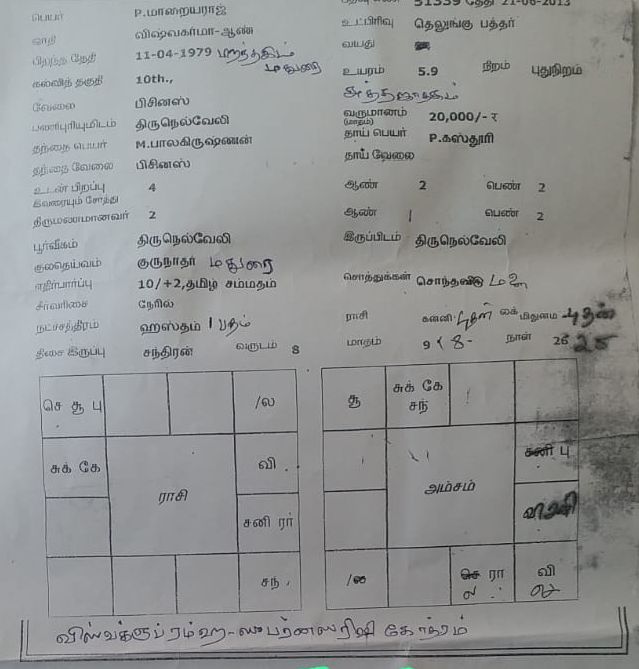 51339 தேதி 21-06-2013
பெயர் P.மாறையராஜ் உட்பிரிவு தெலுங்கு பத்தர்
ஜாதி விஷ்வகர்மா-ஆண் வயது
பிறந்த தேதி 11-04-1979 மதுரை
கல்வித் தகுதி 10th., உயரம் 5.9 நிறம் புதுநிறம்
வேலை பிசினஸ்
பணிபுரியுமிடம் திருநெல்வேலி வருமானம் (மாதம்) 20,000/- ₹
தந்தை பெயர் M.பாலகிருஷ்ணன் தாய் பெயர் P.கஸ்தூரி
தந்தை வேலை பிசினஸ் தாய் வேலை
உடன் பிறப்பு 4 ஆண் 2 பெண் 2
இவரையும் சேர்த்து
திருமணமானவர் 2 ஆண் 1 பெண் 2
பூர்வீகம் திருநெல்வேலி இருப்பிடம் திருநெல்வேலி
குலதெய்வம் குருநாதர் மதுரை
எதிர்பார்ப்பு 10/+2,தமிழ் சம்மதம் சொத்துக்கள் சொந்தவீடு
சீர்வரிசை நேரில்
நட்சத்திரம் ஹஸ்தம் 1 பதம் ராசி கன்னி புதன் லக் மிதுனம் புதன்
திசை இருப்பு சந்திரன் வருடம் 8 மாதம் 9 8 - நாள் 26 25
செ சூ பு /ல
சுக் கே வி
ராசி
சனி ரா
சந்
சூ சுக் கே சந்
சனி பு
அம்சம்
/ல செ ரா வி
விஸ்வக்குப்ரம்ஹ-ஸுபர்னஸரிஷி கோத்ரம்